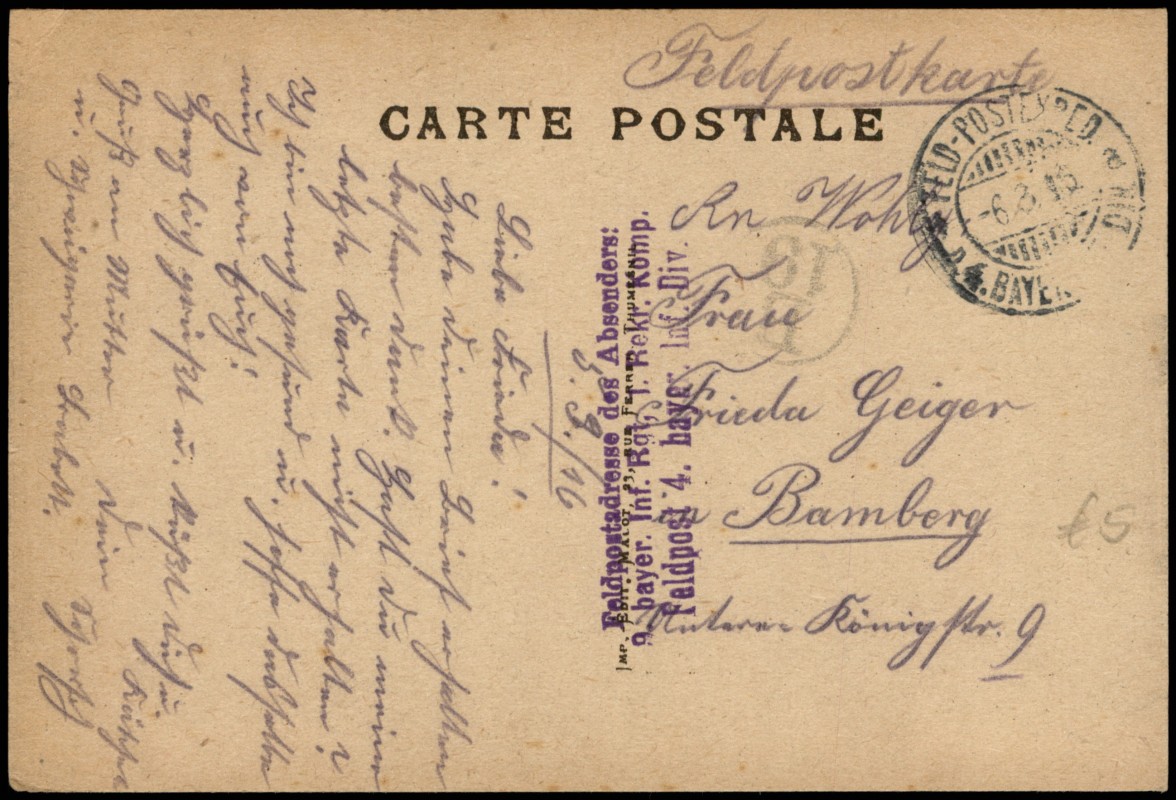 Feldpostkarte
CARTE POSTALE
FELD-POSTEXPED.
-6.3.16
4. BAYER.
DIV.
An Wohlg
Frau
Frieda Geiger
Bamberg
Untere Königstr. 9
Feldpostadresse des Absenders:
9. bayer. Inf. Rgt, 1. Rekr. Komp.
Feldpost 4. bayer. Inf. Div.
IMP. EDIT. MALOT, 23, RUE FERRER THUMESNIL
3./16
Liebe Frieda!
Habe deinen Brief erhalten
besten Dank. Hast du meine
letzte Karte nicht erhalten?
Ich bin noch gesund u. hoffe dasselbe
auch von Euch!
Herzlich grüßt u. küßt dich u. Käthe
Gruß an Mutter dein Schorsch
u. Schwägerin Babett.
£5